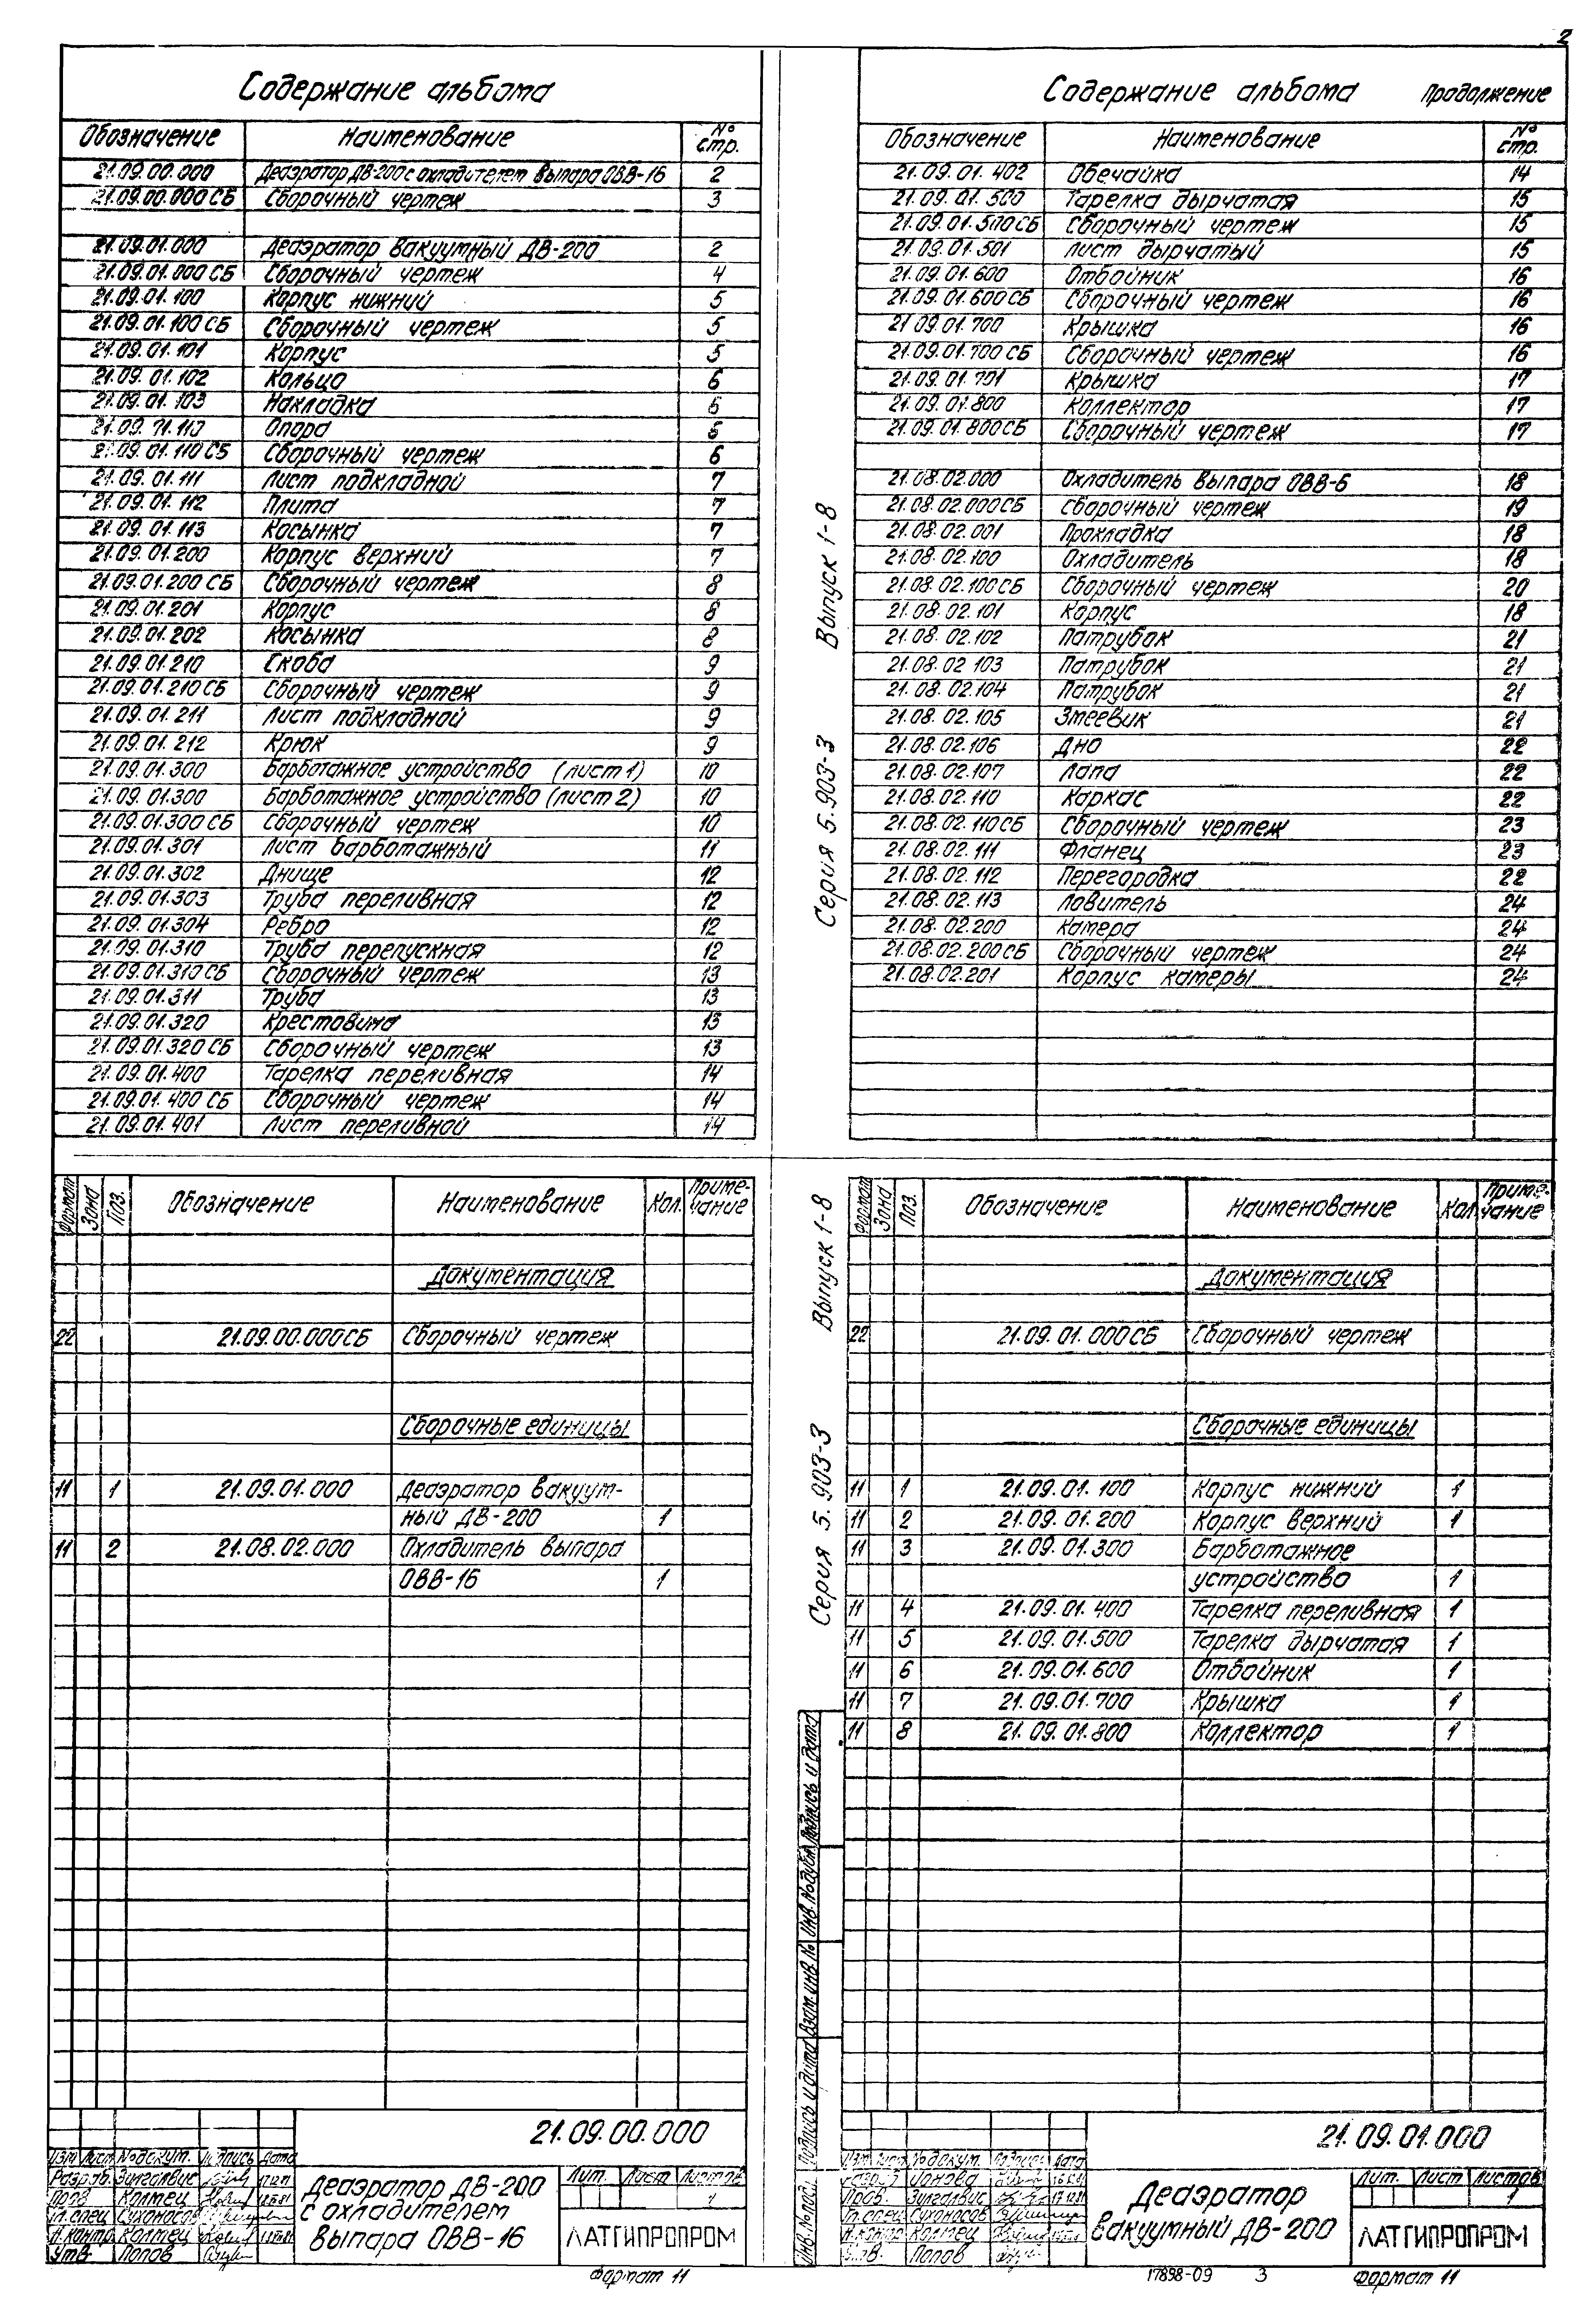 2
Содержание альбома
Обозначение Наименование № стр.
21.09.00.000 Деаэратор ДВ-200 с охладителем выпара ОВВ-16 2
21.09.00.000 СБ Сборочный чертеж 3
21.09.01.000 Деаэратор вакуумный ДВ-200 2
21.09.01.000 СБ Сборочный чертеж 4
21.09.01.100 Корпус нижний 5
21.09.01.100 СБ Сборочный чертеж 5
21.09.01.101 Корпус 5
21.09.01.102 Кольцо 6
21.09.01.103 Накладка 6
21.09.01.110 Опора 6
21.09.01.110 СБ Сборочный чертеж 6
21.09.01.111 Лист подкладной 7
21.09.01.112 Плита 7
21.09.01.113 Косынка 7
21.09.01.200 Корпус верхний 7
21.09.01.200 СБ Сборочный чертеж 8
21.09.01.201 Корпус 8
21.09.01.202 Косынка 8
21.09.01.210 Скоба 9
21.09.01.210 СБ Сборочный чертеж 9
21.09.01.211 Лист подкладной 9
21.09.01.212 Крюк 9
21.09.01.300 Барботажное устройство (лист 1) 10
21.09.01.300 Барботажное устройство (лист 2) 10
21.09.01.300 СБ Сборочный чертеж 10
21.09.01.301 Лист барботажный 11
21.09.01.302 Днище 12
21.09.01.303 Труба переливная 12
21.09.01.304 Ребро 12
21.09.01.310 Труба перепускная 12
21.09.01.310 СБ Сборочный чертеж 13
21.09.01.311 Труба 13
21.09.01.320 Крестовина 13
21.09.01.320 СБ Сборочный чертеж 13
21.09.01.400 Тарелка переливная 14
21.09.01.400 СБ Сборочный чертеж 14
21.09.01.401 Лист переливной 14
Серия 5.903-3 Выпуск 1-8
Содержание альбома Продолжение
Обозначение Наименование № стр.
21.09.01.402 Обечайка 14
21.09.01.500 Тарелка дырчатая 15
21.09.01.500 СБ Сборочный чертеж 15
21.09.01.501 Лист дырчатый 15
21.09.01.600 Отбойник 16
21.09.01.600 СБ Сборочный чертеж 16
21 09.01.700 Крышка 16
21.09.01.700 СБ Сборочный чертеж 16
21.09.01.701 Крышка 17
21.09.01.800 Коллектор 17
21.09.01.800 СБ Сборочный чертеж 17
21.08.02.000 Охладитель выпара ОВВ-6 18
21.08.02.000СБ Сборочный чертеж 19
21.08.02.001 Прокладка 18
21.08.02.100 Охладитель 18
21.08.02.100 СБ Сборочный чертеж 20
21.08.02.101 Корпус 18
21.08.02.102 Патрубок 21
21.08.02 103 Патрубок 21
21.08.02.104 Патрубок 21
21.08.02.105 Змеевик 21
21.08.02.106 Дно 22
21.08.02.107 Лапа 22
21.08.02.110 Каркас 22
21.08.02.110 СБ Сборочный чертеж 23
21.08.02.111 Фланец 23
21.08.02.112 Перегородка 22
21.08.02.113 Ловитель 24
21.08.02.200 Камера 24
21.08.02.200СБ Сборочный чертеж 24
21.08.02.201 Корпус камеры 24
Формат Зона Поз. Обозначение Наименование Кол. Примечание
Документация
22 21.09.00.000СБ Сборочный чертеж
Сборочные единицы
11 1 21.09.01.000 Деаэратор вакуум-
ный ДВ-200 1
11 2 21.08.02.000 Охладитель выпара
ОВВ-16 1
21.09.00.000
Изм Лист № докум. Подпись Дата
Разраб. Зингалвис
Пров Колтец
Гл.спец Сухоносов
Н.контр Колтец
Утв. Попов
Деаэратор ДВ-200
с охладителем
выпара ОВВ-16
Лит. Лист Листов
1
ЛАТГИПРОПРОМ
Формат 11
Серия 5.903-3 Выпуск 1-8
Формат Зона Поз. Обозначение Наименование Кол. Примечание
Документация
22 21.09.01.000СБ Сборочный чертеж
Сборочные единицы
11 1 21.09.01.100 Корпус нижний 1
11 2 21.09.01.200 Корпус верхний 1
11 3 21.09.01.300 Барботажное
устройство 1
11 4 21.09.01.400 Тарелка переливная 1
11 5 21.09.01.500 Тарелка дырчатая 1
11 6 21.09.01.600 Отбойник 1
11 7 21.09.01.700 Крышка 1
11 8 21.09.01.800 Коллектор 1
Инв. № подл. Подпись и дата Взам. инв. № Инв. № дубл Подпись и дата
21.09.01.000
Изм Лист № докум. Подпись Дата
Разраб Ионова
Пров. Зингалвис
Гл.спец Сухоносов
Н.контр Колтец
Утв. Попов
Деаэратор
вакуумный ДВ-200
Лит. Лист Листов
1
ЛАТГИПРОПРОМ
17898-09 3 Формат 11